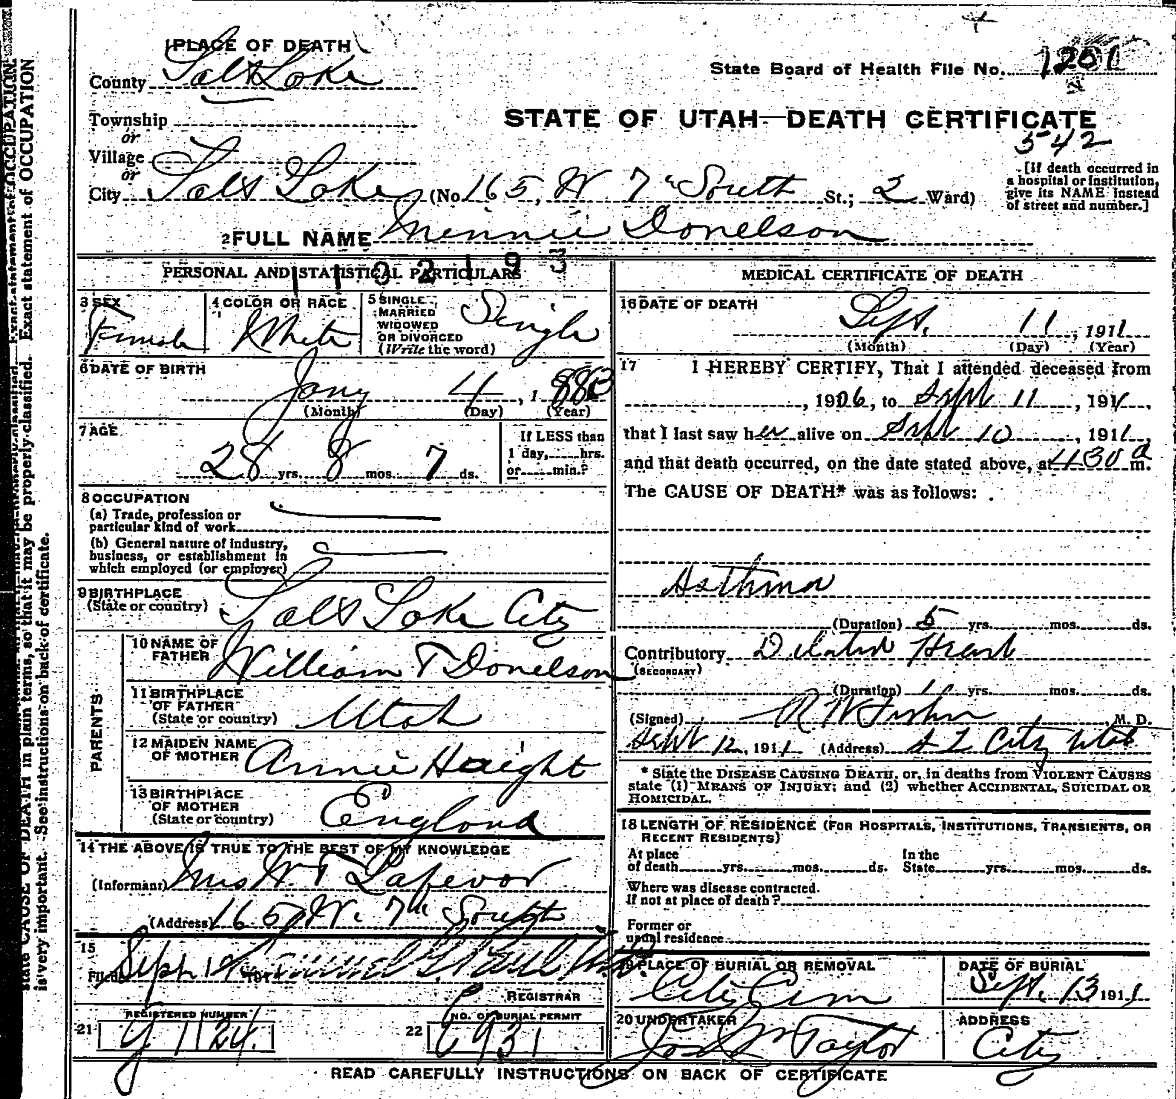 1 PLACE OF DEATH
County Salt Lake
Township
or
Village
or
City Salt Lake (No. 165, W 7th South St.; 2 Ward)
State Board of Health File No. 1201
STATE OF UTAH—DEATH CERTIFICATE
542
[If death occurred in
a hospital or institution,
give its NAME instead
of street and number.]
2 FULL NAME Minnie Donelson
PERSONAL AND STATISTICAL PARTICULARS
1102193
3 SEX
Female
4 COLOR OR RACE
White
5 SINGLE,
MARRIED
WIDOWED
OR DIVORCED
(Write the word)
Single
6 DATE OF BIRTH
Jany 4, 1883
(Month) (Day) (Year)
7 AGE
28 yrs. 8 mos. 7 ds.
If LESS than
1 day, hrs.
or min.?
8 OCCUPATION
(a) Trade, profession or
particular kind of work
(b) General nature of industry,
business, or establishment in
which employed (or employer)
9 BIRTHPLACE
(State or country) Salt Lake City
PARENTS
10 NAME OF
FATHER William T Donelson
11 BIRTHPLACE
OF FATHER
(State or country) Utah
12 MAIDEN NAME
OF MOTHER Annie Haight
13 BIRTHPLACE
OF MOTHER
(State or country) England
14 THE ABOVE IS TRUE TO THE BEST OF MY KNOWLEDGE
(Informant) Mrs W. T. Lafevor
(Address) 165 W. 7th South
15
Filed Sept 12 191
REGISTRAR
REGISTERED NUMBER
21 1124.
NO. OF BURIAL PERMIT
22 C 931
MEDICAL CERTIFICATE OF DEATH
16 DATE OF DEATH
Sept. 11, 1911
(Month) (Day) (Year)
17 I HEREBY CERTIFY, That I attended deceased from
, 1906, to Sept 11, 191
that I last saw her alive on Sept 10, 1911,
and that death occurred, on the date stated above, at 430 a m.
The CAUSE OF DEATH* was as follows:
Asthma
(Duration) 5 yrs. mos. ds.
Contributory Dilated Heart
(SECONDARY)
(Duration) 1 yrs. mos. ds.
(Signed) R W Fisher, M. D.
Sept 12, 1911 (Address) S L City Utah
* State the DISEASE CAUSING DEATH, or, in deaths from VIOLENT CAUSES
state (1) MEANS OF INJURY; and (2) whether ACCIDENTAL, SUICIDAL OR
HOMICIDAL.
18 LENGTH OF RESIDENCE (FOR HOSPITALS, INSTITUTIONS, TRANSIENTS, OR
RECENT RESIDENTS)
At place
of death yrs. mos. ds.
In the
State yrs. mos. ds.
Where was disease contracted.
If not at place of death?
Former or
usual residence
19 PLACE OF BURIAL OR REMOVAL
City Cem
DATE OF BURIAL
Sept. 13 1911
20 UNDERTAKER
Jos Wm Taylor
ADDRESS
City
READ CAREFULLY INSTRUCTIONS ON BACK OF CERTIFICATE
state CAUSE OF DEATH in plain terms, so that it may be properly classified. Exact statement of OCCUPATION
is very important. See instructions on back of certificate.